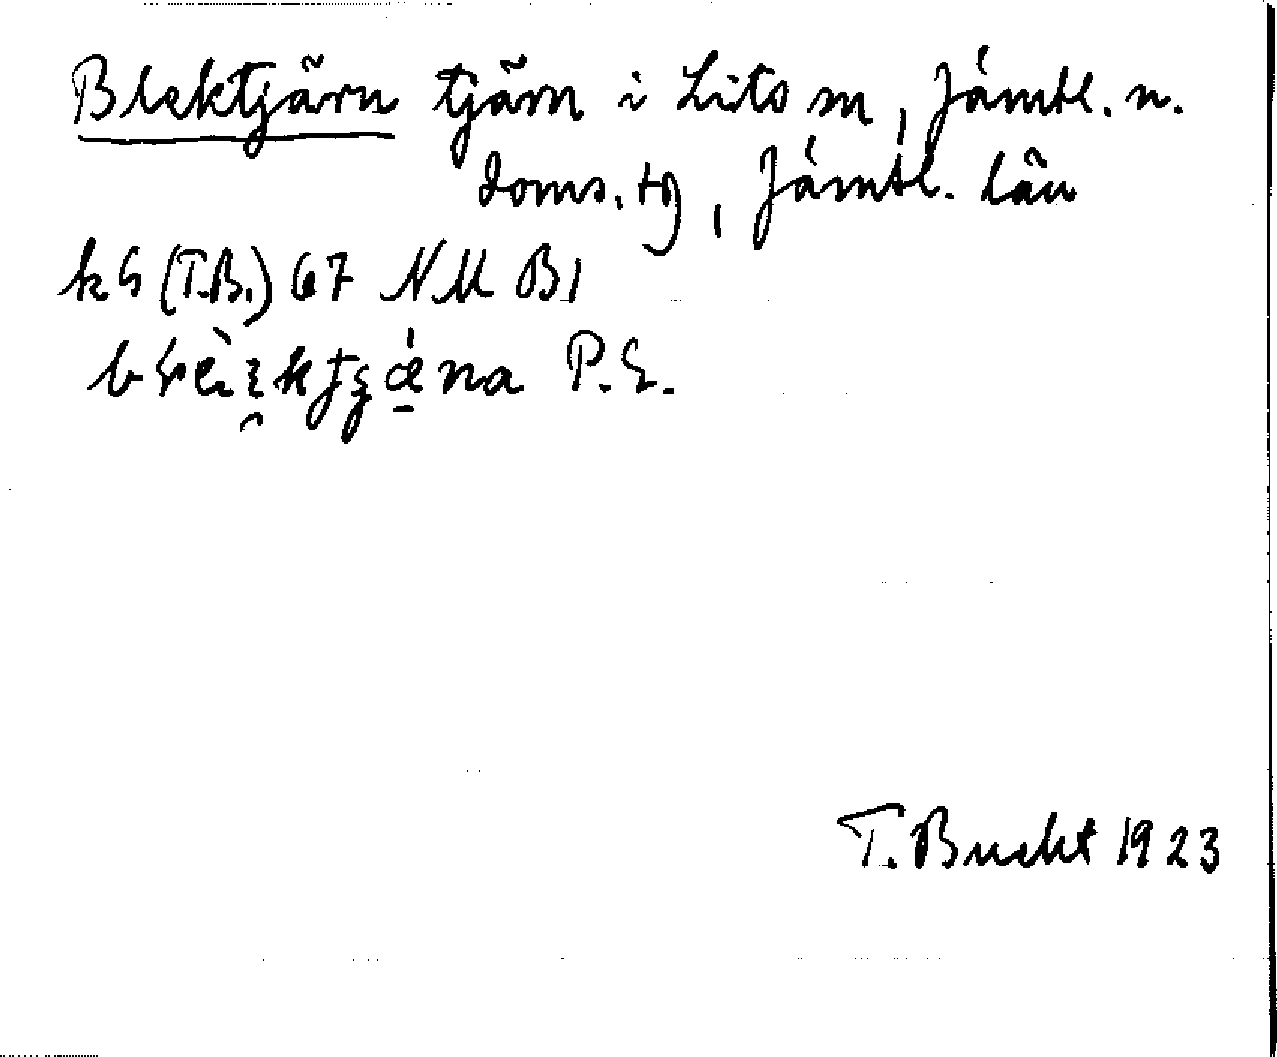 Blektjärn tjärn i Lits sn, Jämtl. n.
doms.tg, Jämtl. län
k5 (T.B.) 67 NM B1
P.E.
T. Bucht 1923